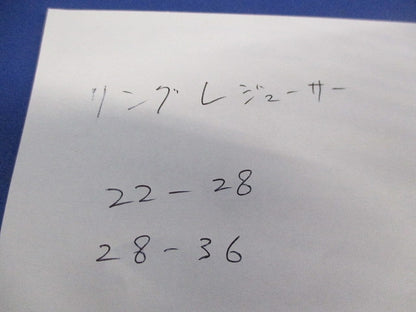 リングレジューサー
22-28
28-36